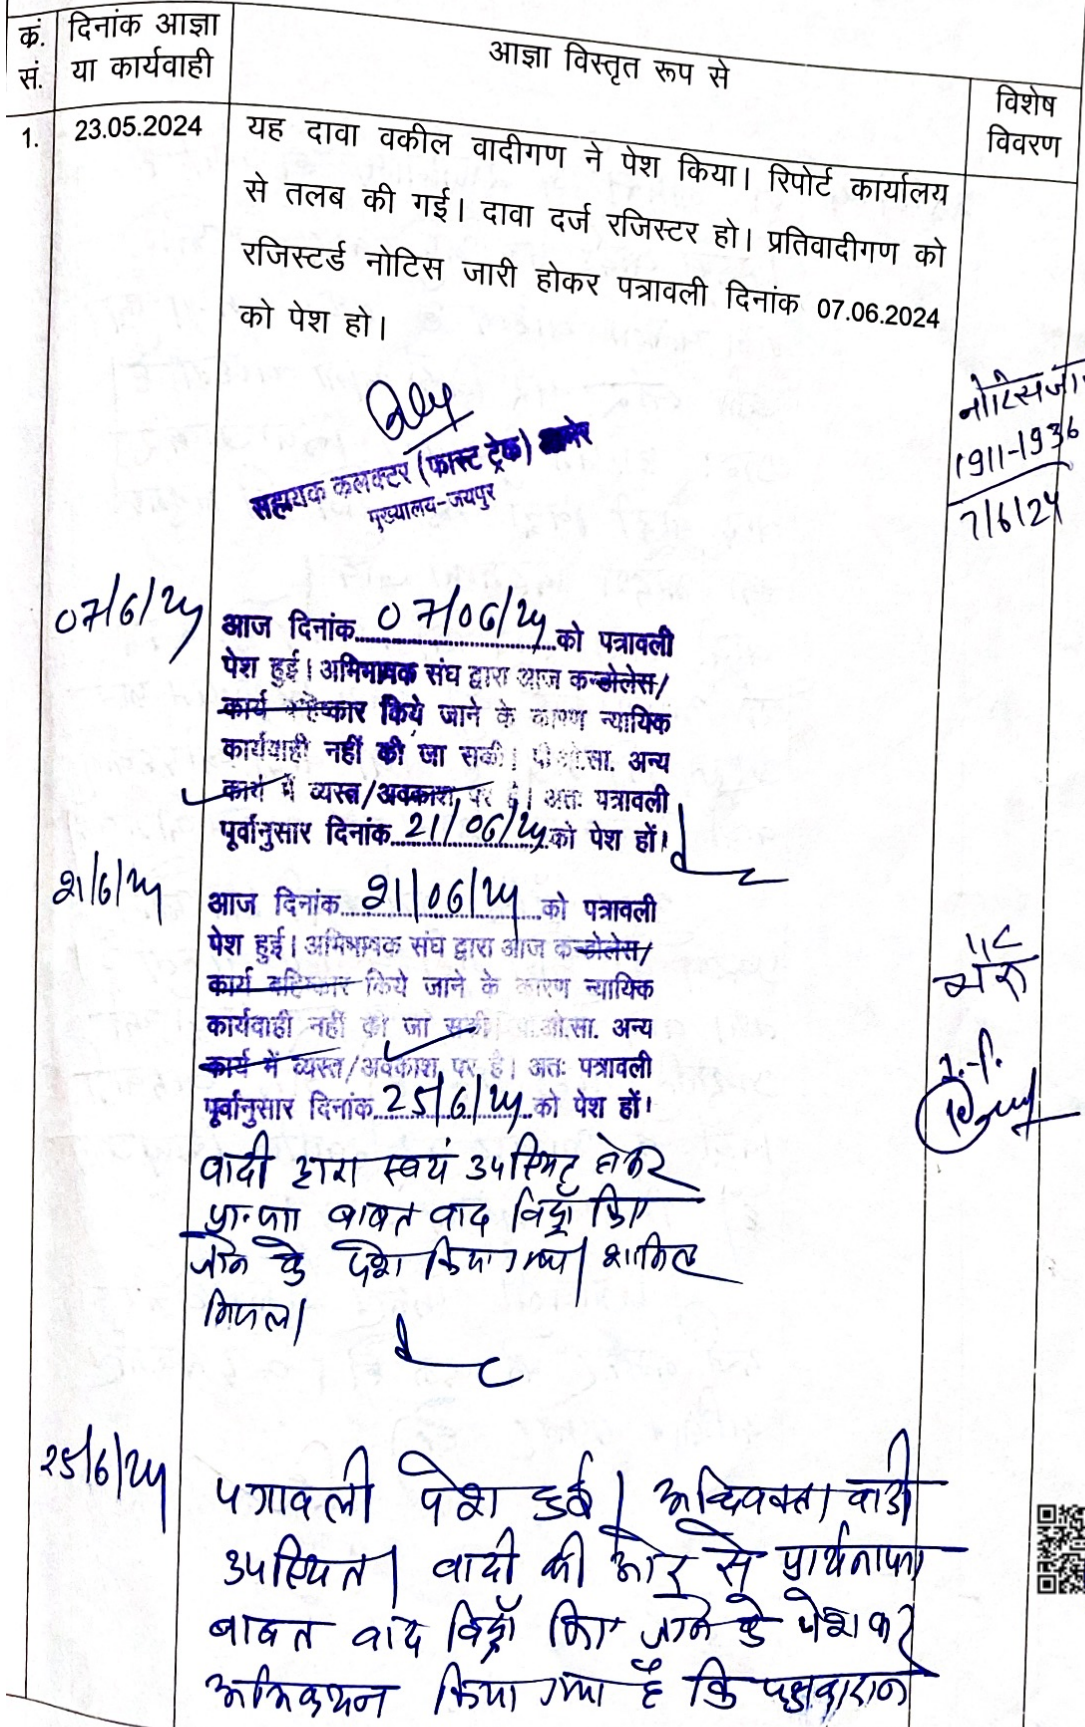 क्र. सं.
दिनांक आज्ञा या कार्यवाही
आज्ञा विस्तृत रूप से
विशेष विवरण
1.
23.05.2024
यह दावा वकील वादीगण ने पेश किया। रिपोर्ट कार्यालय
से तलब की गई। दावा दर्ज रजिस्टर हो। प्रतिवादीगण को
रजिस्टर्ड नोटिस जारी होकर पत्रावली दिनांक 07.06.2024
को पेश हो।
नोटिस जा
1911-1936
7/6/24
सहायक कलक्टर (फास्ट ट्रेक) आमेर
मुख्यालय-जयपुर
07/6/24
आज दिनांक 07/06/24 को पत्रावली
पेश हुई। अभिभाषक संघ द्वारा आज कन्डोलेंस/
कार्य बहिष्कार किये जाने के कारण न्यायिक
कार्यवाही नहीं की जा सकी। पी.ओ.सा. अन्य
कार्य में व्यस्त/अवकाश पर है। अतः पत्रावली
पूर्वानुसार दिनांक 21/06/24 को पेश हों।
21/6/24
आज दिनांक 21/06/24 को पत्रावली
पेश हुई। अभिभाषक संघ द्वारा आज कन्डोलेंस/
कार्य बहिष्कार किये जाने के कारण न्यायिक
कार्यवाही नहीं की जा सकी। पी.ओ.सा. अन्य
कार्य में व्यस्त/अवकाश पर है। अतः पत्रावली
पूर्वानुसार दिनांक 25/6/24 को पेश हों।
वादी द्वारा स्वयं उपस्थित होकर
प्रा.पत्र बाबत वाद विड्रॉ किए
जाने के पेश किया गया। शामिल
मिसल।
25/6/24
पत्रावली पेश हुई। अधिवक्ता वादी
उपस्थित। वादी की ओर से प्रार्थनापत्र
बाबत वाद विड्रॉ किए जाने के पेश कर
अभिकथन किया गया है कि पक्षकारान